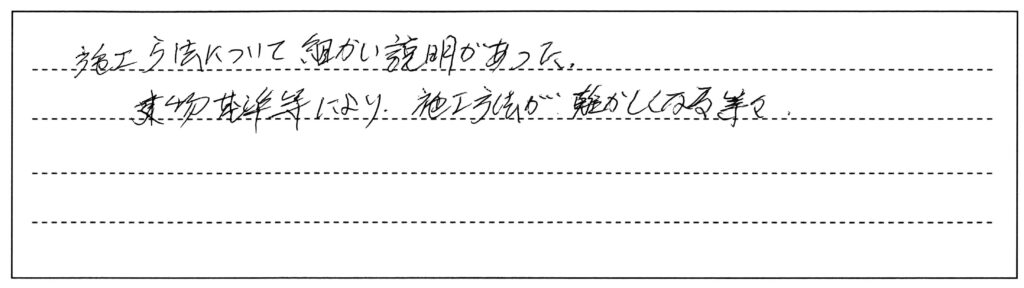 施工方法について細かい説明があった。
建物基準等により、施工方法が難かしくなる等々.